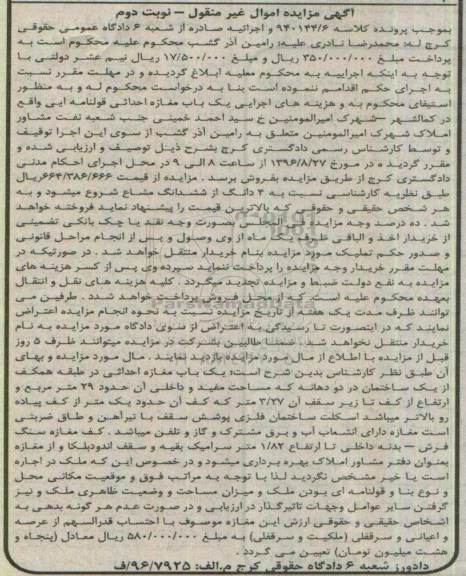 آگهی مزایده اموال غیر منقول – نوبت دوم
بموجب پرونده کلاسه ۹۴۰۱۴۴/۶ و اجرائیه صادره از شعبه ۶ دادگاه عمومی حقوقی
کرج له: محمدرضا نادری علیه: رامین آذر گشب محکوم علیه محکوم است به
پرداخت مبلغ ۳۵۰/۰۰۰/۰۰۰ ریال و مبلغ ۱۷/۵۰۰/۰۰۰ ریال نیم عشر دولتی با
توجه به اینکه اجراییه به محکوم معلیه ابلاغ گردیده و در مهلت مقرر نسبت
به اجرای حکم اقدامم ننموده است بنا به درخواست محکوم له و به منظور
استیفای محکوم به و هزینه های اجرایی یک باب مغازه احداثی قولنامه ایی واقع
در کمالشهر –شهرک امیرالمومنین خ سید احمد خمینی جنب شعبه نفت مشاور
املاک شهرک امیرالمومنین متعلق به رامین آذر گشب از سوی این اجرا توقیف
و توسط کارشناس رسمی دادگستری کرج بشرح ذیل توصیف و ارزیابی شده و
مقرر گردیده در مورخ ۱۳۹۶/۸/۲۷ از ساعت ۸ الی ۹ در محل اجرای احکام مدنی
دادگستری کرج از طریق مزایده بفروش برسد. مزایده از قیمت ۶۶۴/۳۸۶/۶۶۶ریال
طبق نظریه کارشناسی نسبت به ۴ دانگ از ششدانگ مشاع شروع میشود و به
هر شخص حقیقی و حقوقی که بالاترین قیمت را پیشنهاد نماید فروخته خواهد
شد. ده درصد وجه مزایده فی المجلس بصورت وجه نقد یا چک بانکی تضمینی
از خریدار اخذ و الباقی ظرف یک ماه از وی وصول و پس از انجام مراحل قانونی
و صدور حکم تملیک مورد مزایده بنام خریدار منتقل خواهد شد. در صورتیکه در
مهلت مقرر خریدار وجه مزایده را پرداخت ننماید سپرده وی پس از کسر هزینه های
مزایده به نفع دولت ضبط و مزایده تجدید میگردد. کلیه هزینه های نقل و انتقال
بعهده محکوم علیه است که از محل فروش پرداخت خواهد شد. طرفین می
توانند ظرف مدت یک هفته از تاریخ مزایده نسبت به نحوه انجام مزایده اعتراض
نمایند که در اینصورت تا رسیدگی به اعتراض از سوی دادگاه مورد مزایده به نام
خریدار منتقل نخواهد شد. ضمنا طالبین بشرکت در مزایده میتوانند ظرف ۵ روز
قبل از مزایده با اطلاع از مال مورد مزایده بازدید نمایند. مال مورد مزایده و بهای
آن طبق نظر کارشناس بدین شرح است: یک باب مغازه احداثی در طبقه همکف
از یک ساختمان در دو دهانه که مساحت مفید و داخلی آن حدود ۲۹ متر مربع و
ارتفاع از کف تا زیر سقف آن ۳/۲۷ متر که کف آن حدود یک متر از کف پیاده
رو بالاتر میباشد اسکلت ساختمان فلزی پوشش سقف با تیرآهن و طاق ضربتی
است مغازه دارای انشعاب آب و برق مشترک و گاز و تلفن میباشد. کف مغازه سنگ
فرش – بدنه داخلی تا ارتفاع ۱/۸۲ متر سرامیک بقیه و سقف اندودبلکا و از مغازه
بعنوان دفتر مشاور املاک بهره برداری میشود و در خصوص این که ملک در اجاره
است یا خیر مشخص نگردید لذا با توجه به مراتب فوق و موقعیت مکانی محل
و نوع بنا و قولنامه ای بودن ملک و میزان مساحت و وضعیت ظاهری ملک و نیز
گرفتن سایر عوامل وجهات تاثیرگذار در ارزیابی و در صورت عدم هر گونه بدهی به
اشخاص حقیقی و حقوقی ارزش این مغازه موصوف با احتساب قدرالسهم از عرصه
و اعیانی و سرقفلی (ملکیت و سرقفلی) به مبلغ ۵۸۰/۰۰۰/۰۰۰ ریال معادل (پنجاه و
هشت میلیون تومان) تعیین می گردد.
دادورز شعبه ۶ دادگاه حقوقی کرج م.الف: ۹۶/۷۹۲۵/ف